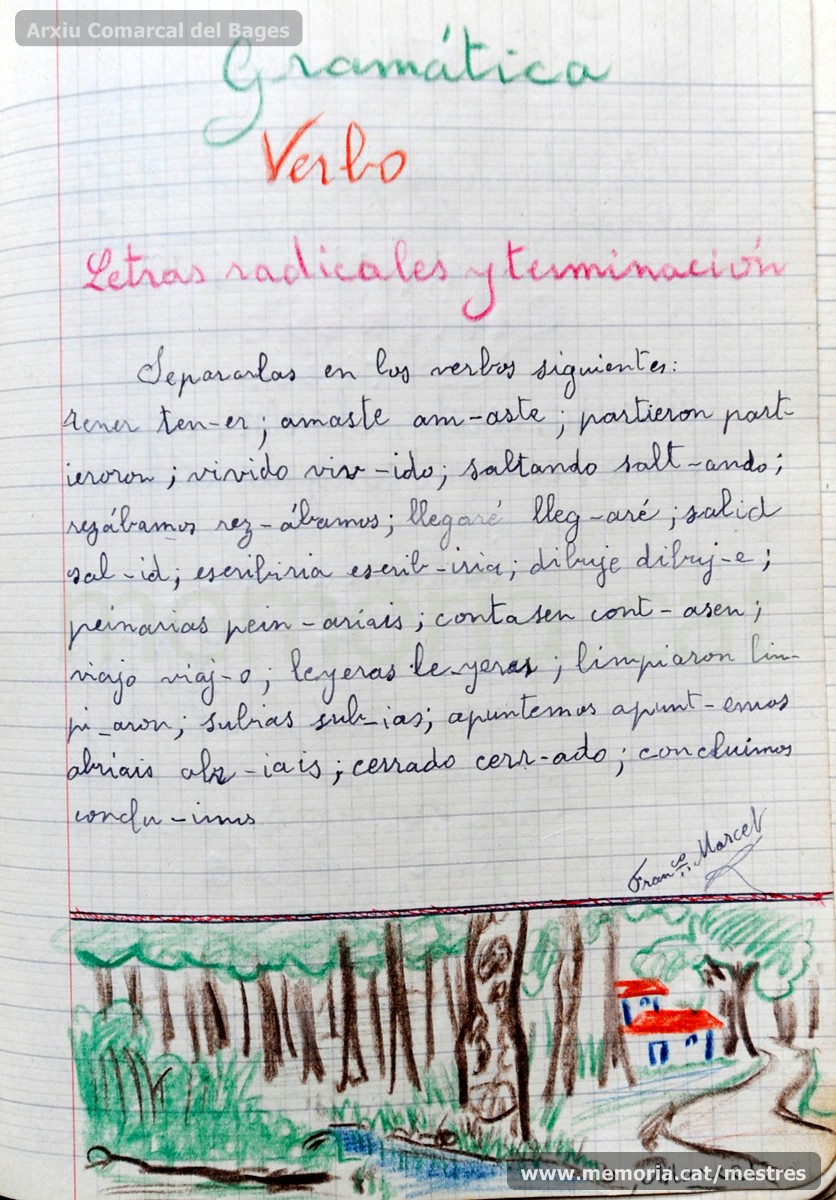 Arxiu Comarcal del Bages
Gramática
Verbo
Letras radicales y terminación
Separarlas en los verbos siguientes:
tener ten-er; amaste am-aste; partieron part-
ieroron; vivido viv-ido; saltando salt-ando;
rezábamos rez-ábamos; llegaré lleg-aré; salid
sal-id; escribiria escrib-iria; dibuje dibuj-e;
peinarias pein-ariais; contasen cont-asen;
viajo viaj-o; leyeras le-yeras; limpiaron lim-
pi-aron; subias sub-ias; apuntemos apunt-emos
abriais abr-iais; cerrado cerr-ado; concluimos
conclu-imos
Franco Marcet
www.memoria.cat/mestres